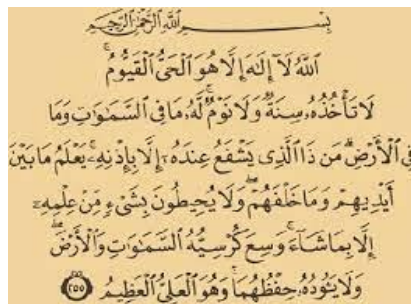 بِسْمِ اللَّهِ الرَّحْمَٰنِ الرَّحِيمِ
اللَّهُ لَا إِلَٰهَ إِلَّا هُوَ الْحَيُّ الْقَيُّومُ ۚ
لَا تَأْخُذُهُ سِنَةٌ وَلَا نَوْمٌ ۚ لَّهُ مَا فِي السَّمَاوَاتِ وَمَا
فِي الْأَرْضِ ۗ مَن ذَا الَّذِي يَشْفَعُ عِندَهُ إِلَّا بِإِذْنِهِ ۚ يَعْلَمُ مَا بَيْنَ
أَيْدِيهِمْ وَمَا خَلْفَهُمْ ۖ وَلَا يُحِيطُونَ بِشَيْءٍ مِّنْ عِلْمِهِ
إِلَّا بِمَا شَاءَ ۚ وَسِعَ كُرْسِيُّهُ السَّمَاوَاتِ وَالْأَرْضَ ۖ
وَلَا يَئُودُهُ حِفْظُهُمَا ۚ وَهُوَ الْعَلِيُّ الْعَظِيمُ ﴿٢٥٥﴾